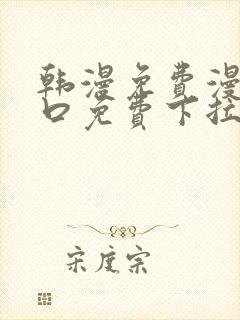 韩漫免费漫
口免费下拉
宋度宗